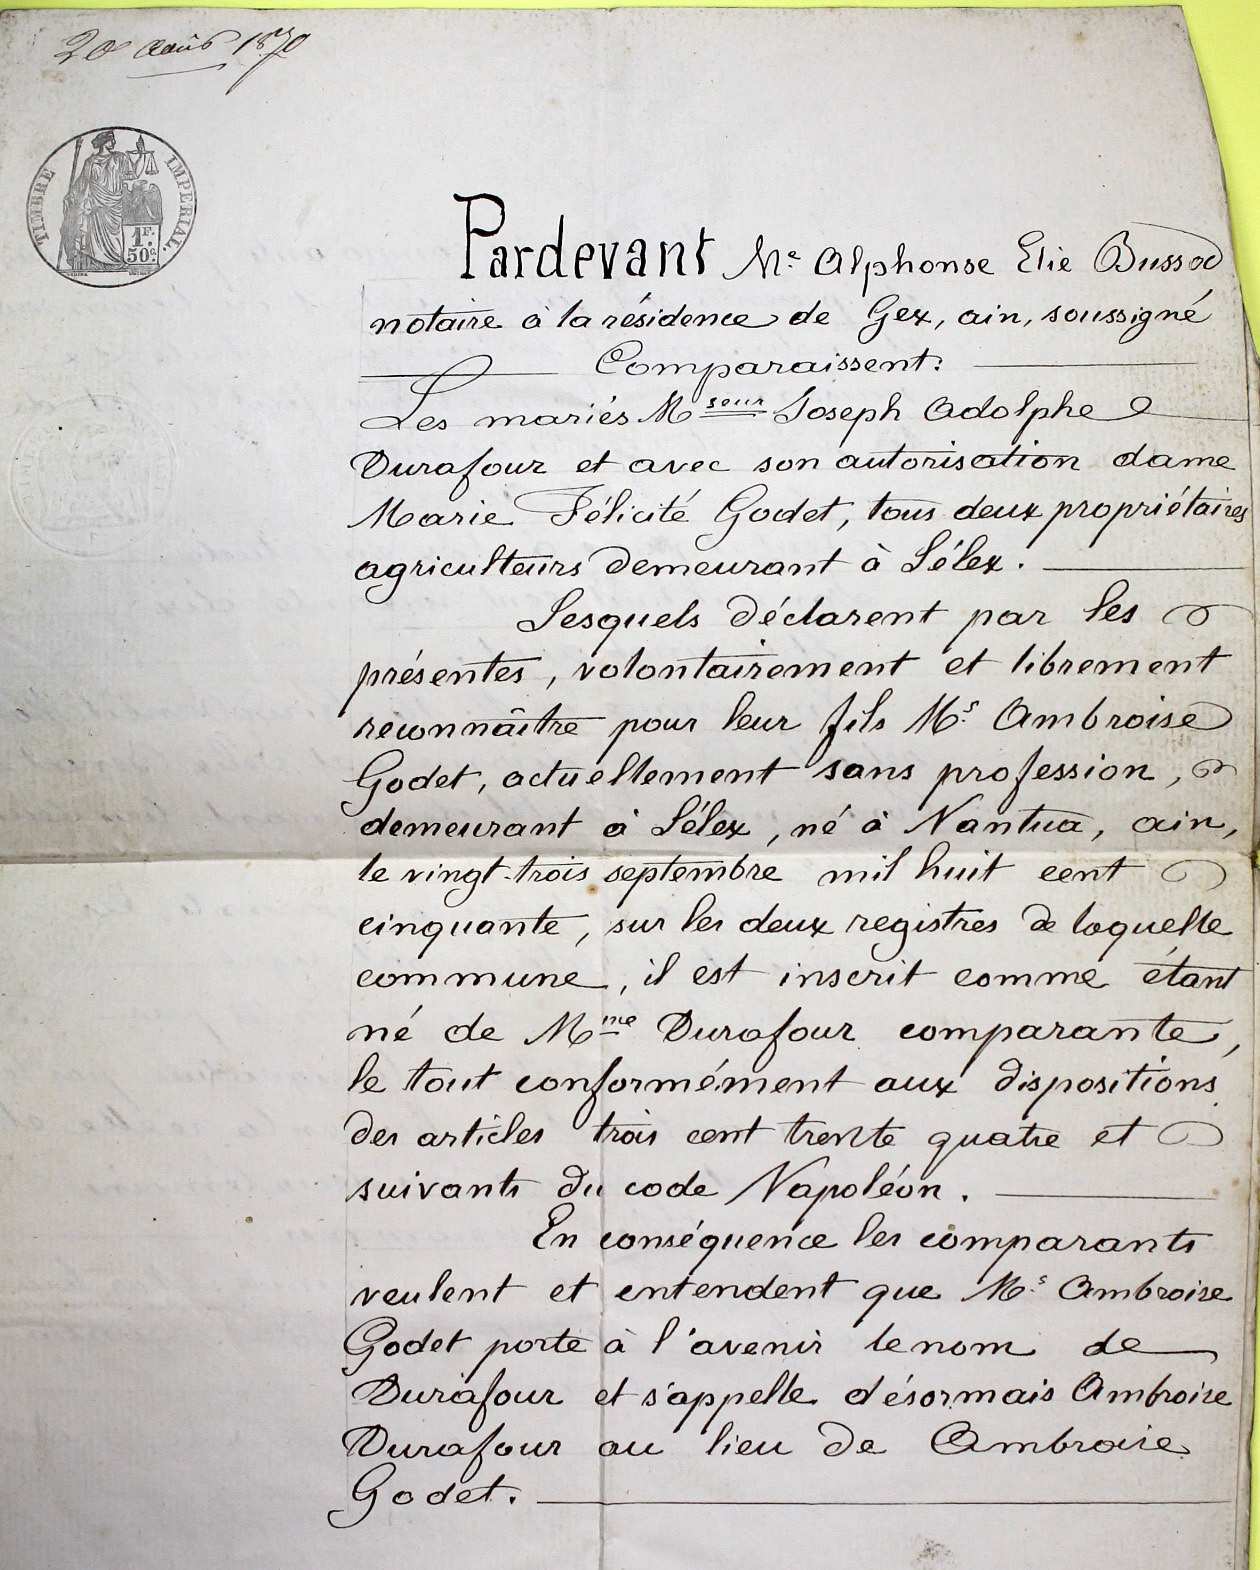 20 Août 1870
TIMBRE IMPERIAL.
1F.
50c.
Pardevant Me Alphonse Elie Bussod
notaire à la résidence de Gex, ain, soussigné
Comparaissent:
Les mariés Msieur Joseph Adolphe
Durafour et avec son autorisation dame
Marie Félicité Godet, tous deux propriétaires
agriculteurs demeurant à Lélex.
Lesquels déclarent par les
présentes, volontairement et librement
reconnaître pour leur fils Mr. Ambroise
Godet, actuellement sans profession,
demeurant à Lélex, né à Nantua, ain,
le vingt-trois septembre mil huit cent
cinquante, sur les deux registres de laquelle
commune, il est inscrit comme étant
né de Mme Durafour comparante,
le tout conformément aux dispositions
des articles trois cent trente quatre et
suivants du code Napoléon.
En conséquence les comparants
veulent et entendent que Mr. Ambroise
Godet porte à l'avenir le nom de
Durafour et s'appelle désormais Ambroise
Durafour au lieu de Ambroise
Godet.